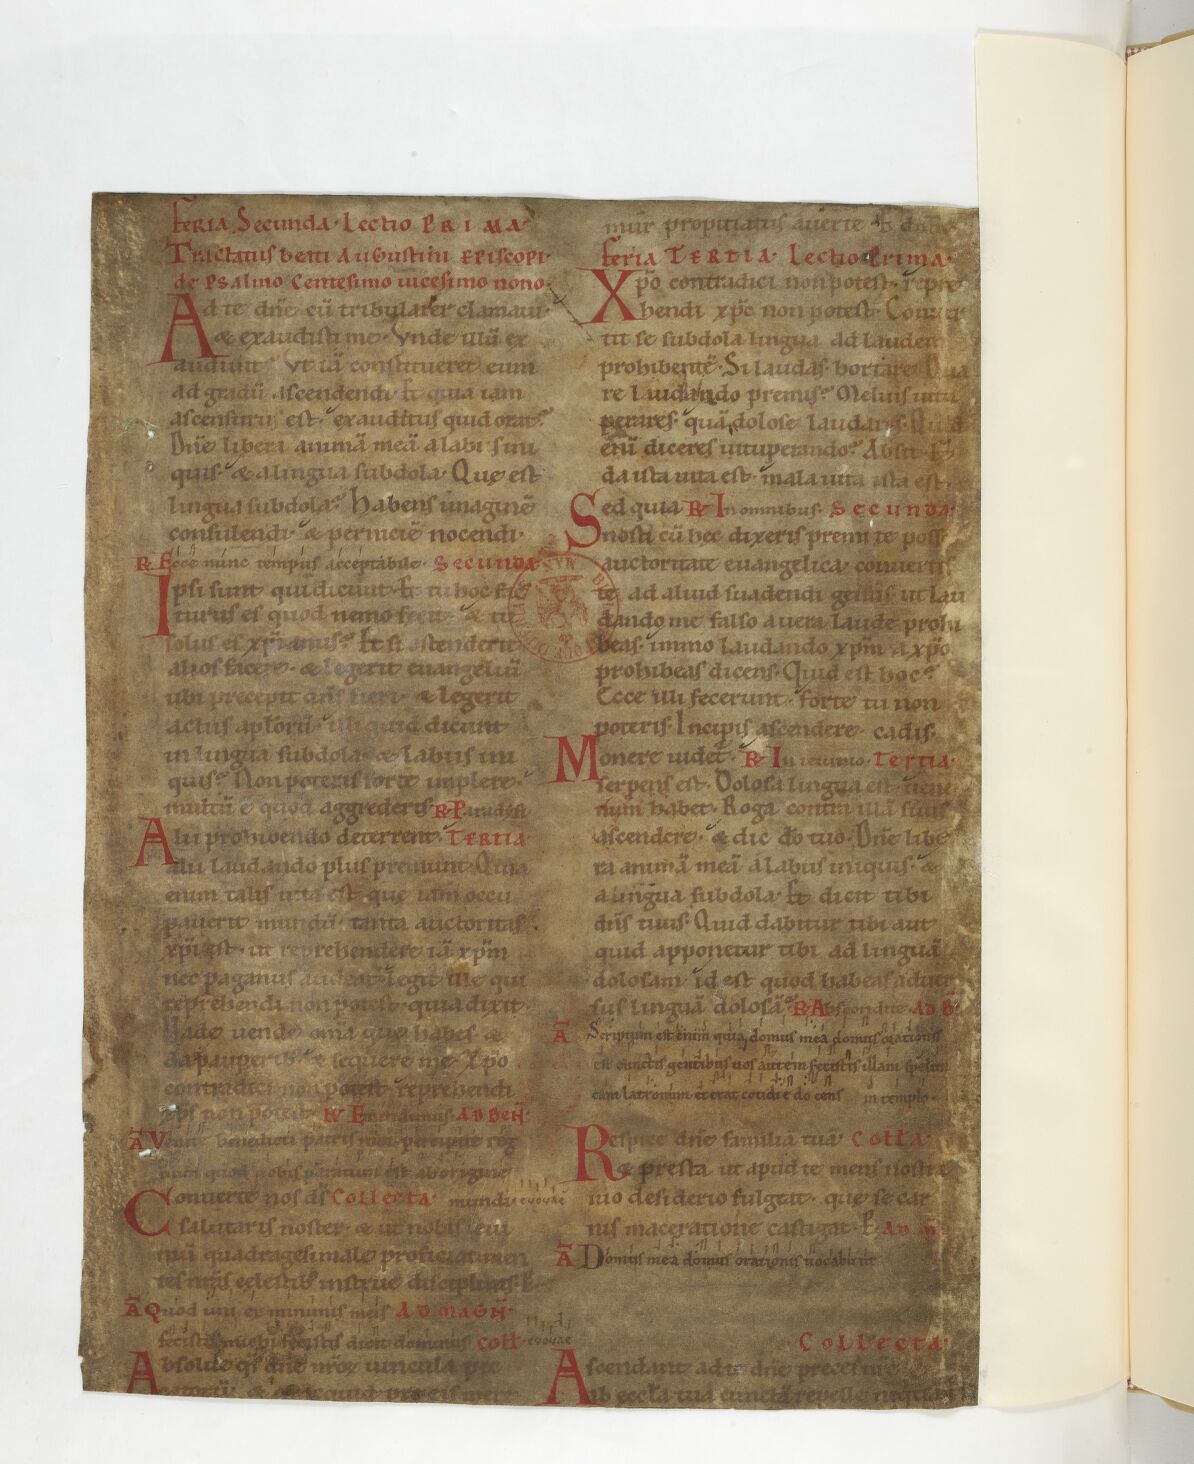 feria Secunda· Lectio PRIMA·
Tractatus beati Augustini episcopi·
de psalmo Centesimo uicesimo nono·
Ad te dñe cũ tribularer clamaui·
& exaudisti me· Vnde illũ ex
audiuit? Vt iã constitueret eum
ad gradũ ascendendi· Et quia iam
ascensurus est· exauditus quid orat?
Dñe libera animã meã a labiis ini
quis· & a lingua subdola· Que est
lingua subdola? Habens imaginẽ
consulendi· & perniciẽ nocendi·
R Ecce nunc tempus acceptabile· Secunda
Ipsi sunt qui dicunt· Et tu hoc fac
turus es quod nemo facit· & tu
solus es xp̃ianus? Et si ostenderit
alios facere· & legerit euangeliũ
ubi precepit dñs fieri· & legerit
actus aplorũ· illi quid dicunt
in lingua subdola· & labiis ini
quis? Non poteris forte implere·
multũ ẽ quod aggrederis· R Paradisi
Alii prohibendo deterrent· Tertia
alii laudando plus premunt· Quia
enim talis uita est que iam occu
pauerit mundũ· tanta auctoritas
xp̃i est· ut reprehendere iã xp̃m
nec paganus audeat· legit ille qui
reprehendi non potest· quia dixit
Uade uende oma que habes &
da pauperib; & sequere me· Xp̃o
contradici non potest· reprehendi
xp̃s non potest· R Emendemus· AD BEÑ·
A Venite benedicti patris mei percipite reg
num quod uobis paratum est ab origine
Conuerte nos ds Collecta· mundi euouae
salutaris noster· & ut nobis ieiu
niũ quadragesimale proficiat men
tes nr̃as celestib; instrue disciplinis·
A Quod uni ex minimis meis AD MAGÑ·
fecistis michi fecistis dicit dominus coll· euouae
Absolue qs dñe nr̃oꝝ uincula pec
catorũ & quicquid pro eis mere
mur propitiatus auerte·
feria TERTIA· Lectio Prima·
Xp̃o contradici non potest· repre
hendi xp̃o non potest· Conuer
tit se subdola lingua ad laudem
prohibentẽ· Si laudas hortare· Qua
re laudando premis? Melius uitu
perares· quã dolose laudares· Quid
enĩ diceres uituperando? Absit·
da ista uita est· mala uita ista est·
Sed quia R In omnibus· Secunda·
nosti cũ hec dixeris premi te posse
auctoritate euangelica· conuertis
te ad aliud suadendi genus ut lau
dando me falso a uera laude prohi
beas· immo laudando xp̃m a xp̃o
prohibeas dicens· Quid est hoc?
Ecce illi fecerunt· forte tu non
poteris· Incipis ascendere· cadis·
Monere uidet̃· R In ieiunio· Tertia·
serpens est· Dolosa lingua est· uene
num habet· Roga contra illã si uis
ascendere· & dic dõ tuo· Dñe libe
ra animã meã a labiis iniquis· &
a lingua subdola· Et dicit tibi
dñs tuus· Quid dabitur tibi aut
quid apponetur tibi ad linguã
dolosam· id est quod habeas aduer
sus linguã dolosã? R Abscondite AD B̃·
A Scriptum est enim quia domus mea domus orationis
est cunctis gentibus uos autem fecistis illam spelun
cam latronum et erat cotidie docens in templo·
Respice dñe familiã tuã· Coll̃a·
& presta ut apud te mens nostra
tuo desiderio fulgeat· que se car
nis maceratione castigat· P AD M̃·
A Domus mea domus orationis uocabitur
Collecta·
Ascendant ad te dñe preces nr̃e
ab eccl̃a tua cunctã repelle nequitiam